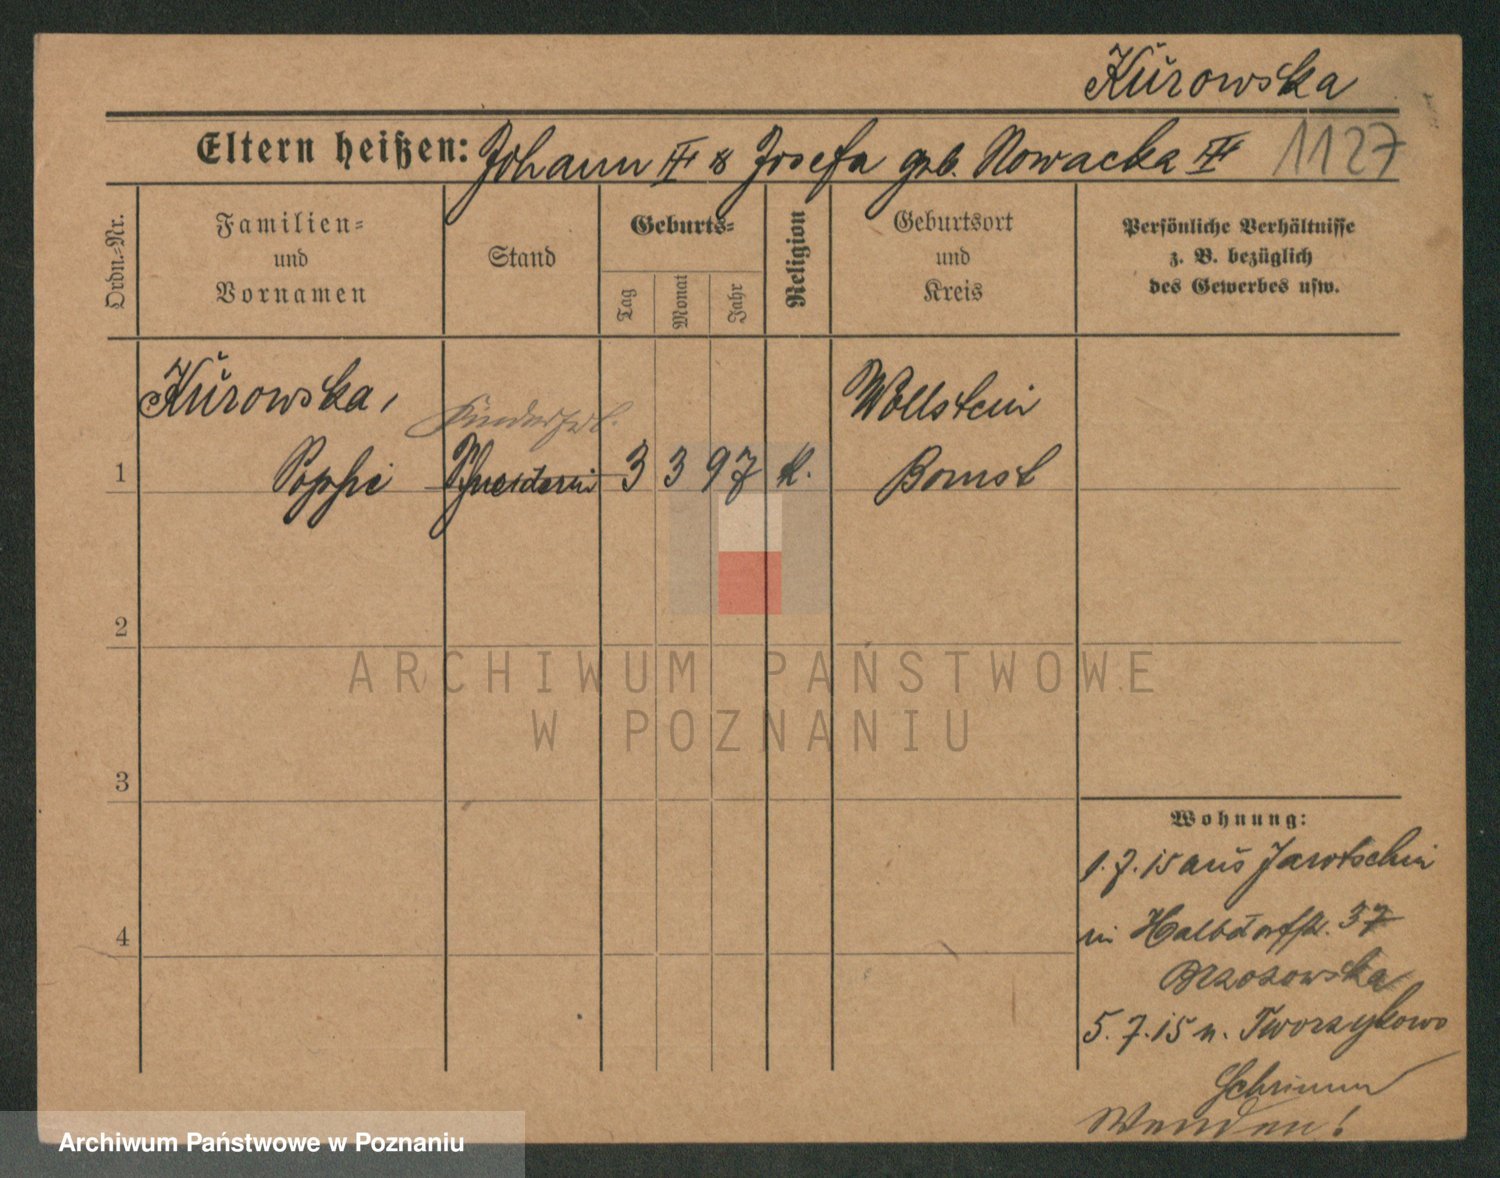 Kŭrowska
Eltern heißen: Johann III & Josefa geb. Nowacka III 1127
Ordn.-Nr.
Familien-
und
Vornamen
Stand
Geburts-
Tag
Monat
Jahr
Religion
Geburtsort
und
Kreis
Persönliche Verhältnisse
z. B. bezüglich
des Gewerbes usw.
Kŭrowska,
Kinderfrl.
Wollstein
1 Sophie Schneiderin 3 3 97 k. Bomst
2
3
4
Wohnung:
1.7.15 aŭs Jarotschin
in Halbdorfstr. 37
Brzozowska
5.7.15 n. Tworzykowo
Schrimm
Wenden!
ARCHIWUM PAŃSTWOWE
W POZNANIU
Archiwum Państwowe w Poznaniu